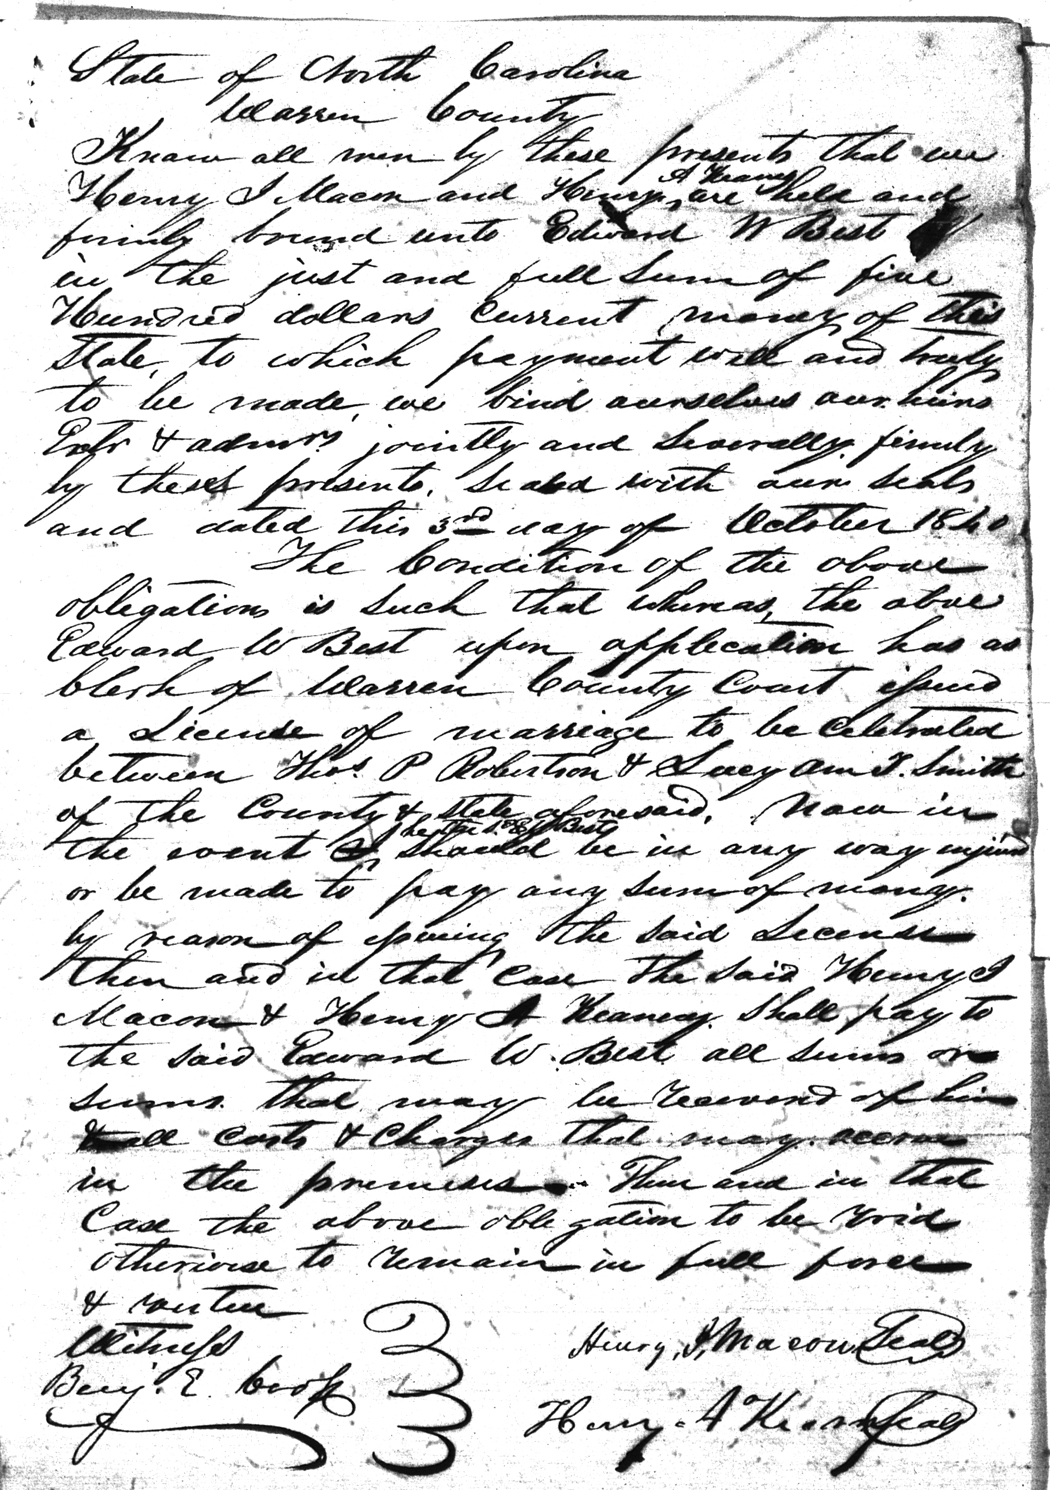 State of North Carolina
Warren County
Know all men by these presents that we
A Kearney
Henry J Macon and Henry ^ are held and
firmly bound unto Edward W Best
in the just and full sum of five
Hundred dollars current money of this
State, to which payment well and truly
to be made, we bind ourselves our heirs
Exts & admrs jointly and severally firmly
by these presents. Sealed with our seals
and dated this 3rd day of October 1840
The Condition of the above
obligation is such that whereas, the above
Edward W Best upon application has as
Clerk of Warren County Court issued
a License of marriage to be celebrated
between Thos. P Robertson & Lucy Ann T. Smith
of the County & State aforesaid. Now in
he the sd E W Best
the event ^ should be in any way injured
or be made to pay any sum of money.
by reason of issuing the said License
then and in that case the said Henry J
Macon & Henry A Kearney shall pay to
the said Edward W. Best all sums or
sums that may be recovered of him
& all costs & charges that may accrue
in the premises. Then and in that
Case the above obligation to be void
otherwise to remain in full force
& virtue
Witness
Henry, J, Macon Seal
Benj. E. Cook
Henry. A Kearney Seal